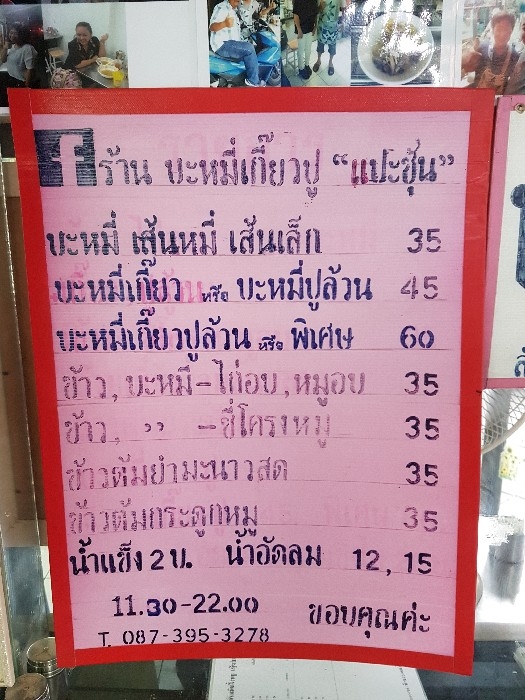 f ร้าน บะหมี่เกี๊ยวปู "แปะซุ้น"
บะหมี่ เส้นหมี่ เส้นเล็ก 35
บะหมี่เกี๊ยว หรือ บะหมี่ปูล้วน 45
บะหมี่เกี๊ยวปูล้วน หรือ พิเศษ 60
ข้าว, บะหมี่-ไก่อบ, หมูอบ 35
ข้าว, ,, -ซี่โครงหมู 35
ข้าวต้มยำมะนาวสด 35
ข้าวต้มกระดูกหมู 35
น้ำแข็ง 2 บ. น้ำอัดลม 12, 15
11.30-22.00 ขอบคุณค่ะ
T. 087-395-3278